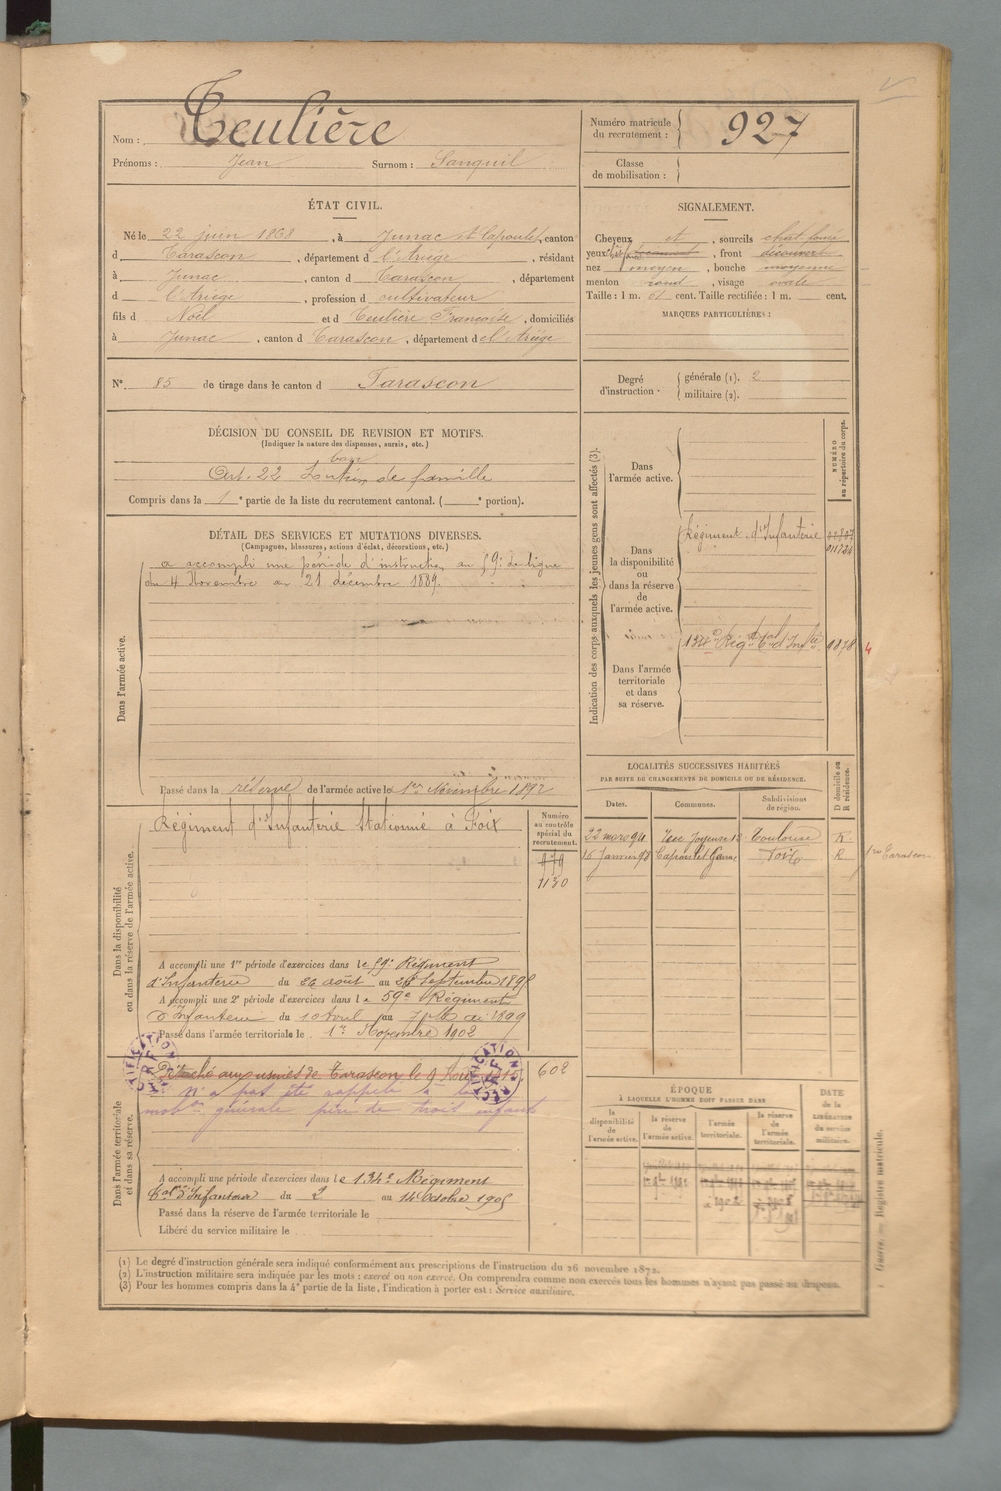 Nom : Teulière
Prénoms : Jean Surnom : Sanquil
Numéro matricule du recrutement : 927
Classe de mobilisation :
ÉTAT CIVIL.
Né le 22 juin 1868, à Junac et Capoulet, canton
d Tarascon, département d l'Ariège, résidant
à Junac, canton d Tarascon, département
d l'Ariège, profession d cultivateur
fils d Noël et d Teulière Françoise, domiciliés
à Junac, canton d Tarascon, département d el'Ariège
N° 85 de tirage dans le canton d Tarascon
SIGNALEMENT.
Cheveux et, sourcils chat. foncé
yeux, front découvert
nez moyen, bouche moyenne
menton rond, visage ovale
Taille : 1 m. 61 cent. Taille rectifiée : 1 m. cent.
MARQUES PARTICULIÈRES :
Degré d'instruction
générale (1). 2
militaire (2).
DÉCISION DU CONSEIL DE REVISION ET MOTIFS.
(Indiquer la nature des dispenses, sursis, etc.)
bon
Art. 22 Soutien de famille
Compris dans la 1e partie de la liste du recrutement cantonal. ( e portion).
DÉTAIL DES SERVICES ET MUTATIONS DIVERSES.
(Campagnes, blessures, actions d'éclat, décorations, etc.)
Dans l'armée active.
a accompli une période d'instruction au 59e de ligne
du 4 Novembre au 21 décembre 1889.
Passé dans la réserve de l'armée active le 1er Novembre 1892
Indication des corps auxquels les jeunes gens sont affectés (3).
NUMÉRO au répertoire du corps.
Dans l'armée active.
Dans la disponibilité ou dans la réserve de l'armée active.
Régiment d'Infanterie
011724
Dans l'armée territoriale et dans sa réserve.
134e Régt tal d'Infie
1878
4
LOCALITÉS SUCCESSIVES HABITÉES
PAR SUITE DE CHANGEMENTS DE DOMICILE OU DE RÉSIDENCE.
D domicile ou R résidence.
Dates. Communes. Subdivisions de région.
22 mars 94 rue Joyeuse 12 Toulouse R.
16 Janvier 98 Capoulet Junac Foix R
Tarascon
Dans la disponibilité ou dans la réserve de l'armée active.
Numéro au contrôle spécial du recrutement.
Régiment d'Infanterie Stationné à Foix
979
1130
A accompli une 1re période d'exercices dans le 59e Régiment
d'Infanterie du 26 août au Septembre 1895
A accompli une 2e période d'exercices dans le 59e Régiment
d'Infanterie du 10 Avril au 1899
Passé dans l'armée territoriale le 1er Novembre 1902
Dans l'armée territoriale et dans sa réserve.
Détaché aux usines de Tarascon le 9 1916
602
RECTIFICATION
R F
RECTIFICATION
R F
n'a pas été rappelé à la
mobon générale père de trois enfants
A accompli une période d'exercices dans le 134e Régiment
tal d'Infanterie du 2 au 14 Octobre 1905
Passé dans la réserve de l'armée territoriale le
Libéré du service militaire le
ÉPOQUE
À LAQUELLE L'HOMME DOIT PASSER DANS
la disponibilité de l'armée active.
la réserve de l'armée active.
l'armée territoriale.
la réserve de l'armée territoriale.
DATE de la LIBÉRATION du service militaire.
Guerre. — Registre matricule.
(1) Le degré d'instruction générale sera indiqué conformément aux prescriptions de l'instruction du 26 novembre 1872.
(2) L'instruction militaire sera indiquée par les mots : exercé ou non exercé. On comprendra comme non exercés tous les hommes n'ayant pas passé au drapeau.
(3) Pour les hommes compris dans la 4e partie de la liste, l'indication à porter est : Service auxiliaire.